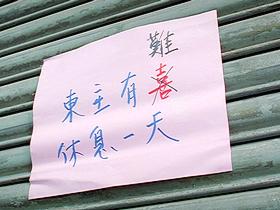 難
東主有喜
休息一天